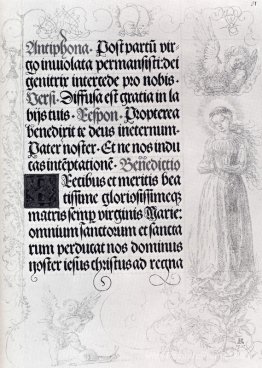 Antiphona. Post partū vir-
go inuiolata permansisti: dei
genitrix intercede pro nobis.
Versi. Diffusa est gratia in la
bijs tuis. Respon. Propterea
benedixit te deus ineternum.
Pater noster. Et ne nos indu
cas intēptationē. Benedictio
Precibus et meritis bea
tissime gloriosissimeqʒ
matris semp virginis Marie:
omnium sanctorum et sancta
rum perducat nos dominus
noster iesus christus ad regna